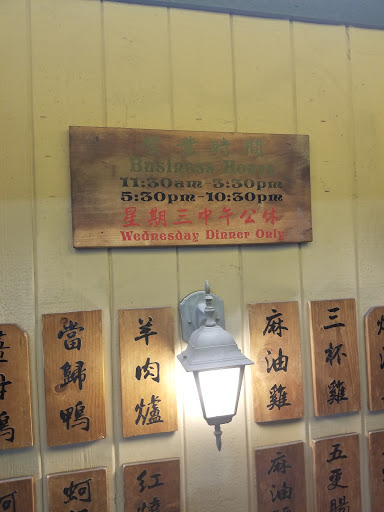 營業時間
Business Hours
11:30am-3:30pm
5:30pm-10:30pm
星期三中午公休
Wednesday Dinner Only
當歸鴨
羊肉爐
麻油雞
三杯雞
紅燒
麻油
五更腸